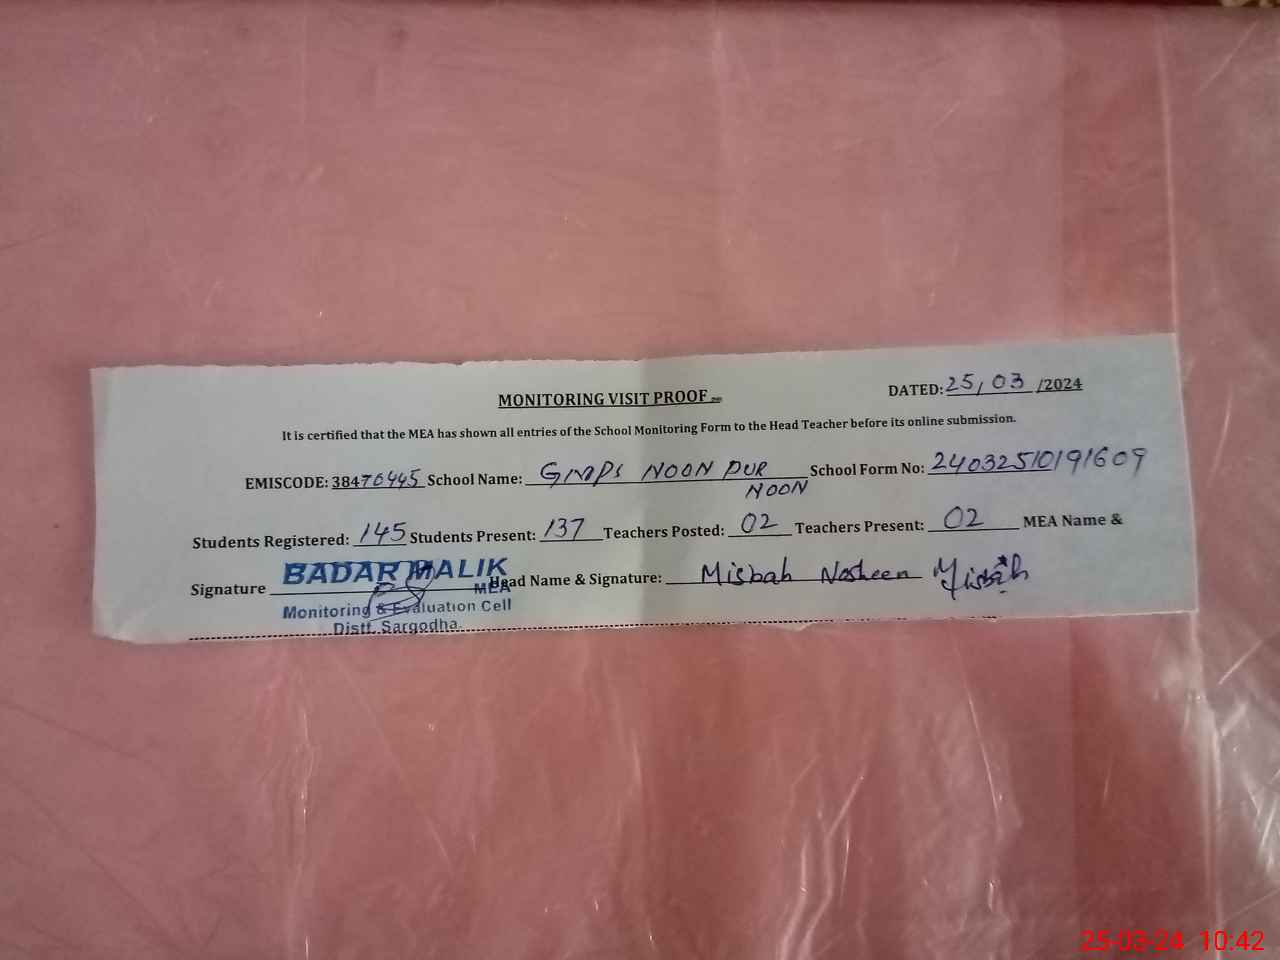 MONITORING VISIT PROOF
DATED: 25/03/2024
It is certified that the MEA has shown all entries of the School Monitoring Form to the Head Teacher before its online submission.
EMISCODE: 38470445 School Name: GMPS NOON PUR NOON School Form No: 24032510191609
Students Registered: 145 Students Present: 137 Teachers Posted: 02 Teachers Present: 02 MEA Name &
Signature BADAR MALIK Head Name & Signature: Misbah Nosheen Misbah
MEA
Monitoring & Evaluation Cell
Distt. Sargodha
25-03-24 10:42